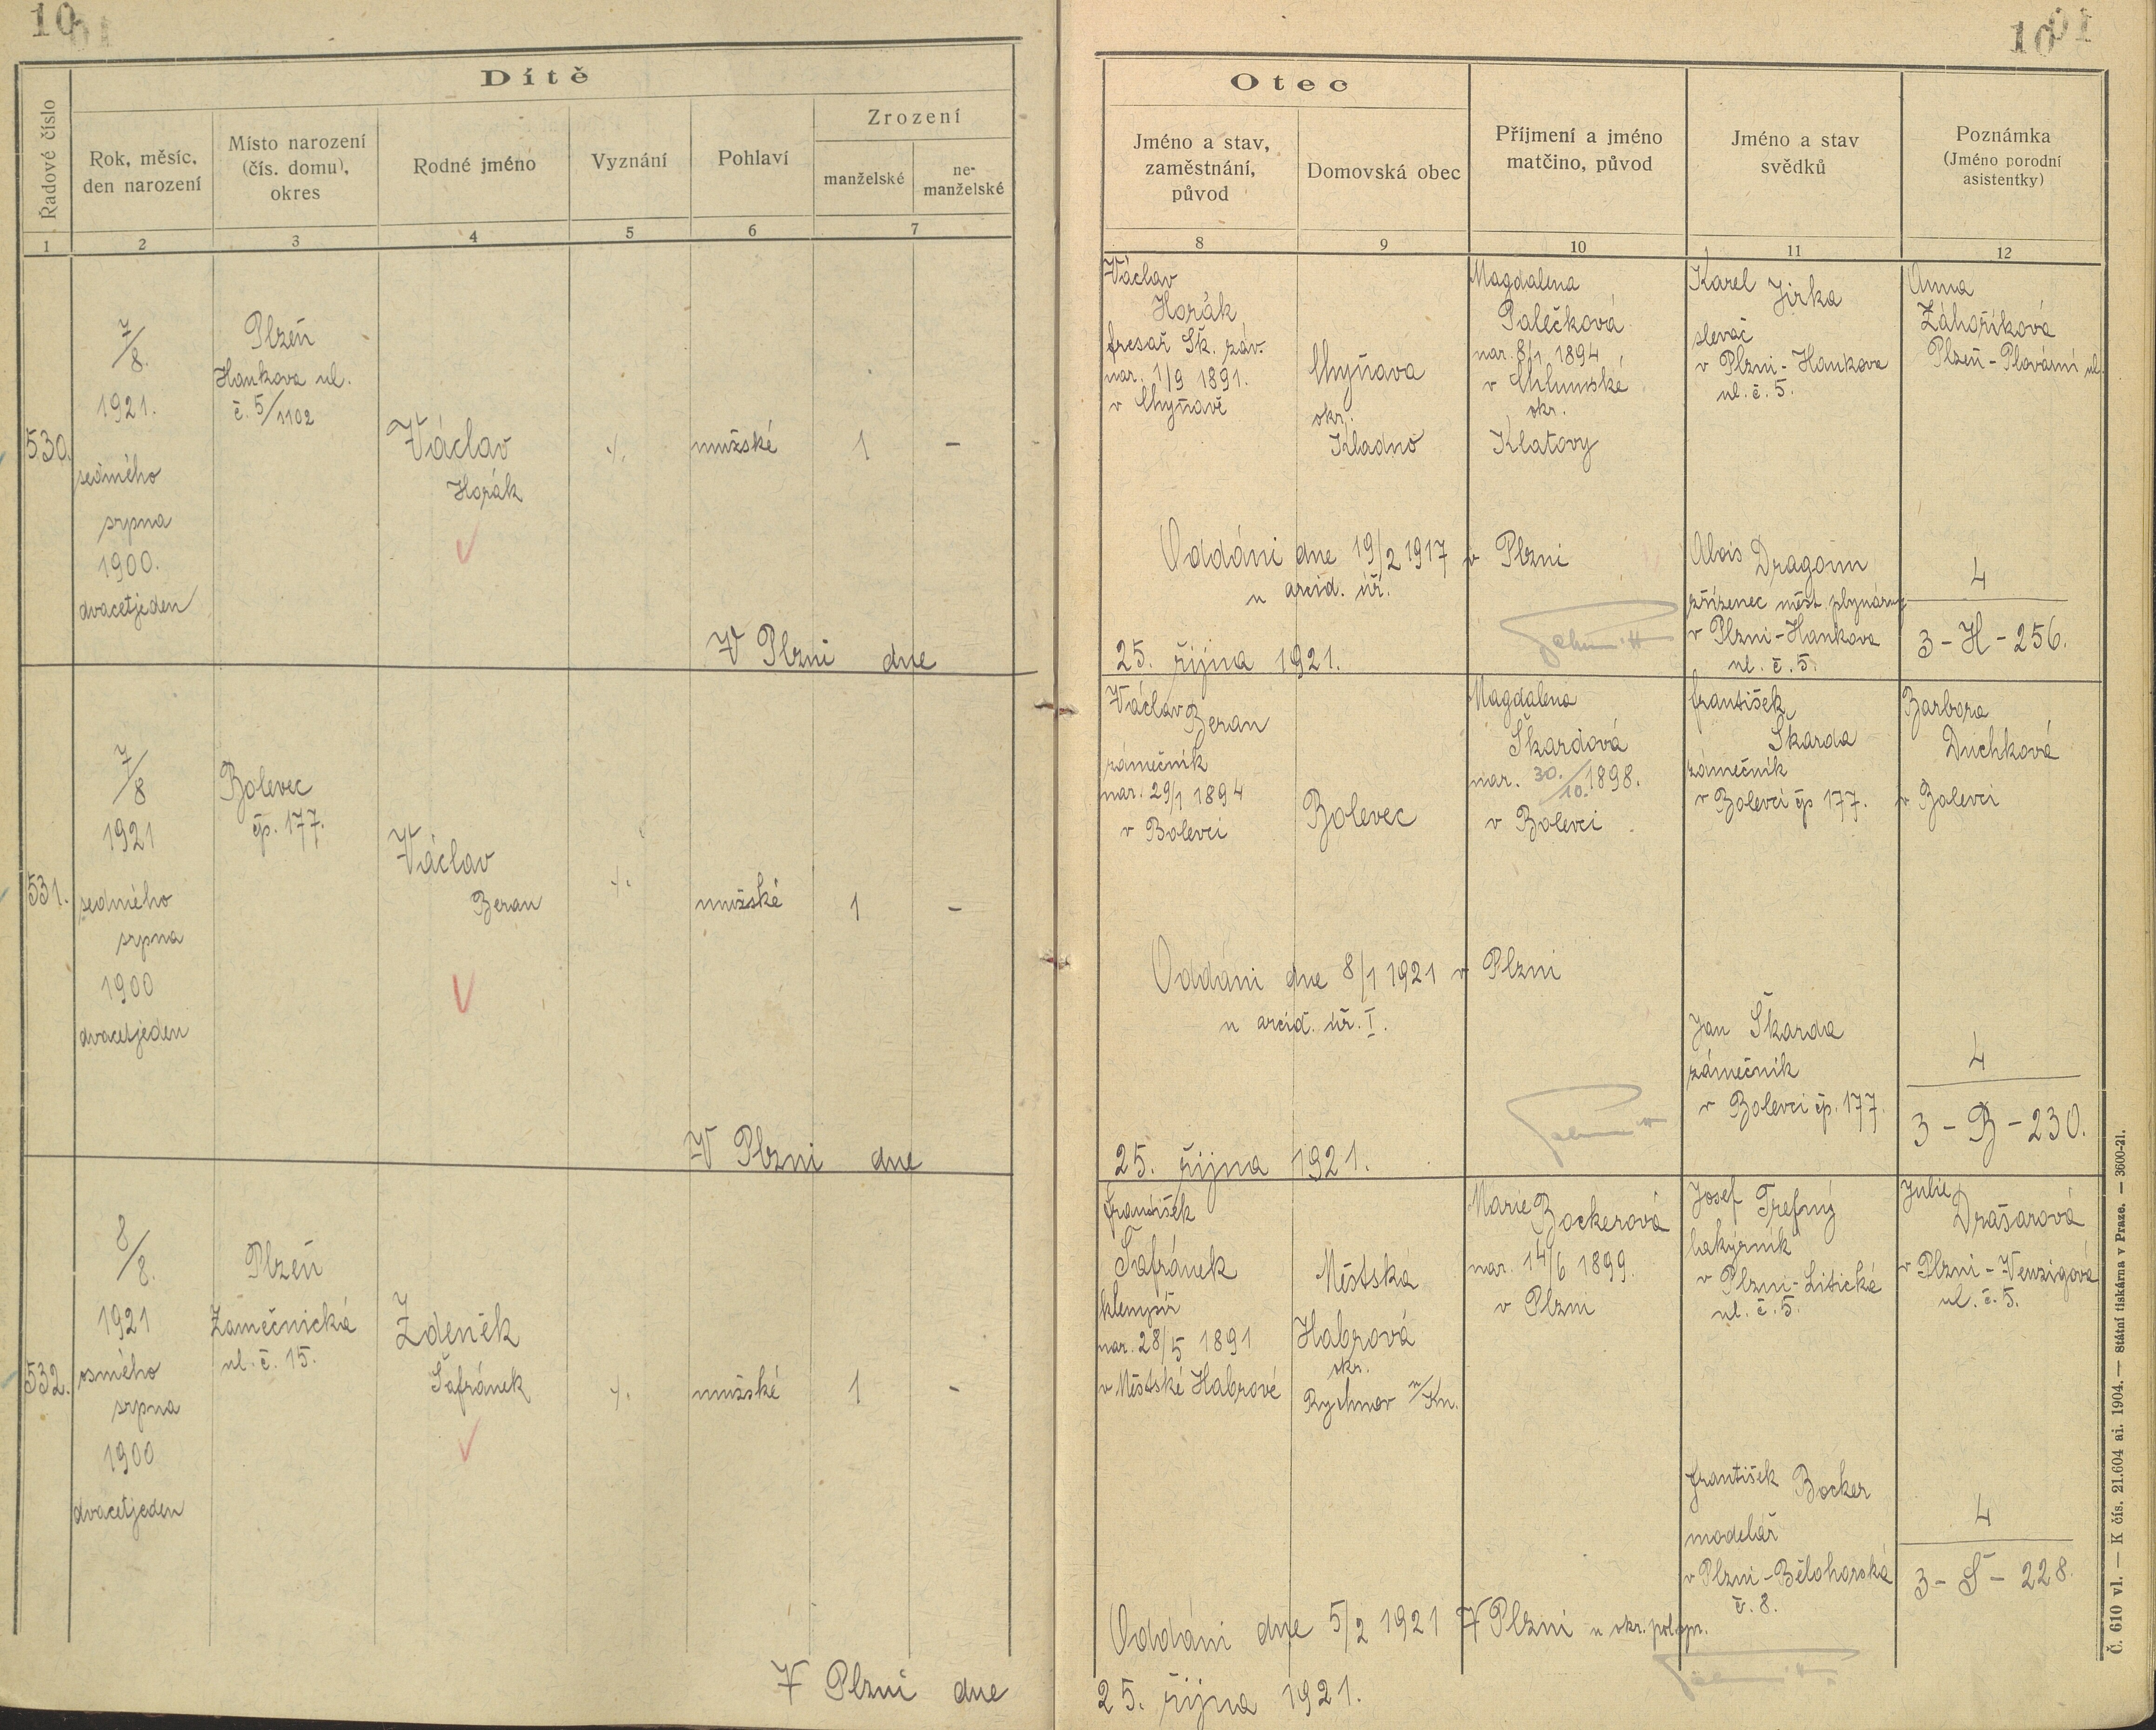 10
Dítě
Řadové číslo
Rok, měsíc,
den narození
Místo narození
(čís. domu),
okres
Rodné jméno
Vyznání
Pohlaví
Zrození
manželské
ne-
manželské
1 2 3 4 5 6 7
530.
7/8.
1921.
sedmého
srpna
1900.
dvacetjeden
Plzeň
Hankova ul.
č. 5/1102
Václav
Horák
•/.
mužské
1
–
V Plzni dne
531.
7/8
1921
sedmého
srpna
1900
dvacetjeden
Bolevec
čp. 177.
Václav
Beran
•/.
mužské
1
–
V Plzni dne
532.
8/8.
1921
osmého
srpna
1900
dvacetjeden
Plzeň
Zámečnická
ul. č. 15.
Zdeněk
Šafránek
•/.
mužské
1
–
V Plzni dne
10
Otec
Jméno a stav,
zaměstnání,
původ
Domovská obec
Příjmení a jméno
matčino, původ
Jméno a stav
svědků
Poznámka
(Jméno porodní
asistentky)
8 9 10 11 12
Václav
Horák
fresař Šk. záv.
nar. 1/9 1891.
v Chyňavě
Chyňava
okr.
Kladno
Magdalena
Palečková
nar. 8/1 1894
v Chlumské
okr.
Klatovy
Karel Jirka
slevač
v Plzni - Hankova
ul. č. 5.
Anna
Záhoříková
Plzeň - Plovární ul.
Oddáni dne 19/2 1917 v Plzni
u arcid. úř.
Alois Dragoun
zřízenec měst. plynárny
v Plzni - Hankova
ul. č. 5.
4
3 - H - 256.
25. října 1921.
Václav Beran
zámečník
nar. 29/1 1894
v Bolevci
Bolevec
Magdalena
Škardová
nar. 30./10. 1898.
v Bolevci
František
Škarda
zámečník
v Bolevci čp 177.
Barbora
Duchková
v Bolevci
Oddáni dne 8/1 1921 v Plzni
u arcid. úř. I.
Jan Škarda
zámečník
v Bolevci čp. 177.
4
3 - B - 230.
25. října 1921.
František
Šafránek
klempíř
nar. 28/5 1891
v Městské Habrové
Městská
Habrová
okr.
Rychnov n/Kn.
Marie Bockerová
nar. 14/6 1899.
v Plzni
Josef Trefný
lakýrník
v Plzni - Litická
ul. č. 5.
Julie
Drašarová
v Plzni - Wenzigova
ul. č. 5.
František Bocker
modelář
v Plzni - Bělohorská
č. 8.
4
3 - Š - 228.
Oddáni dne 5/2 1921 V Plzni u okr. pol. spr.
25. října 1921.
Č. 610 vl. — K čís. 21.604 ai. 1904. — Státní tiskárna v Praze. — 3600-21.